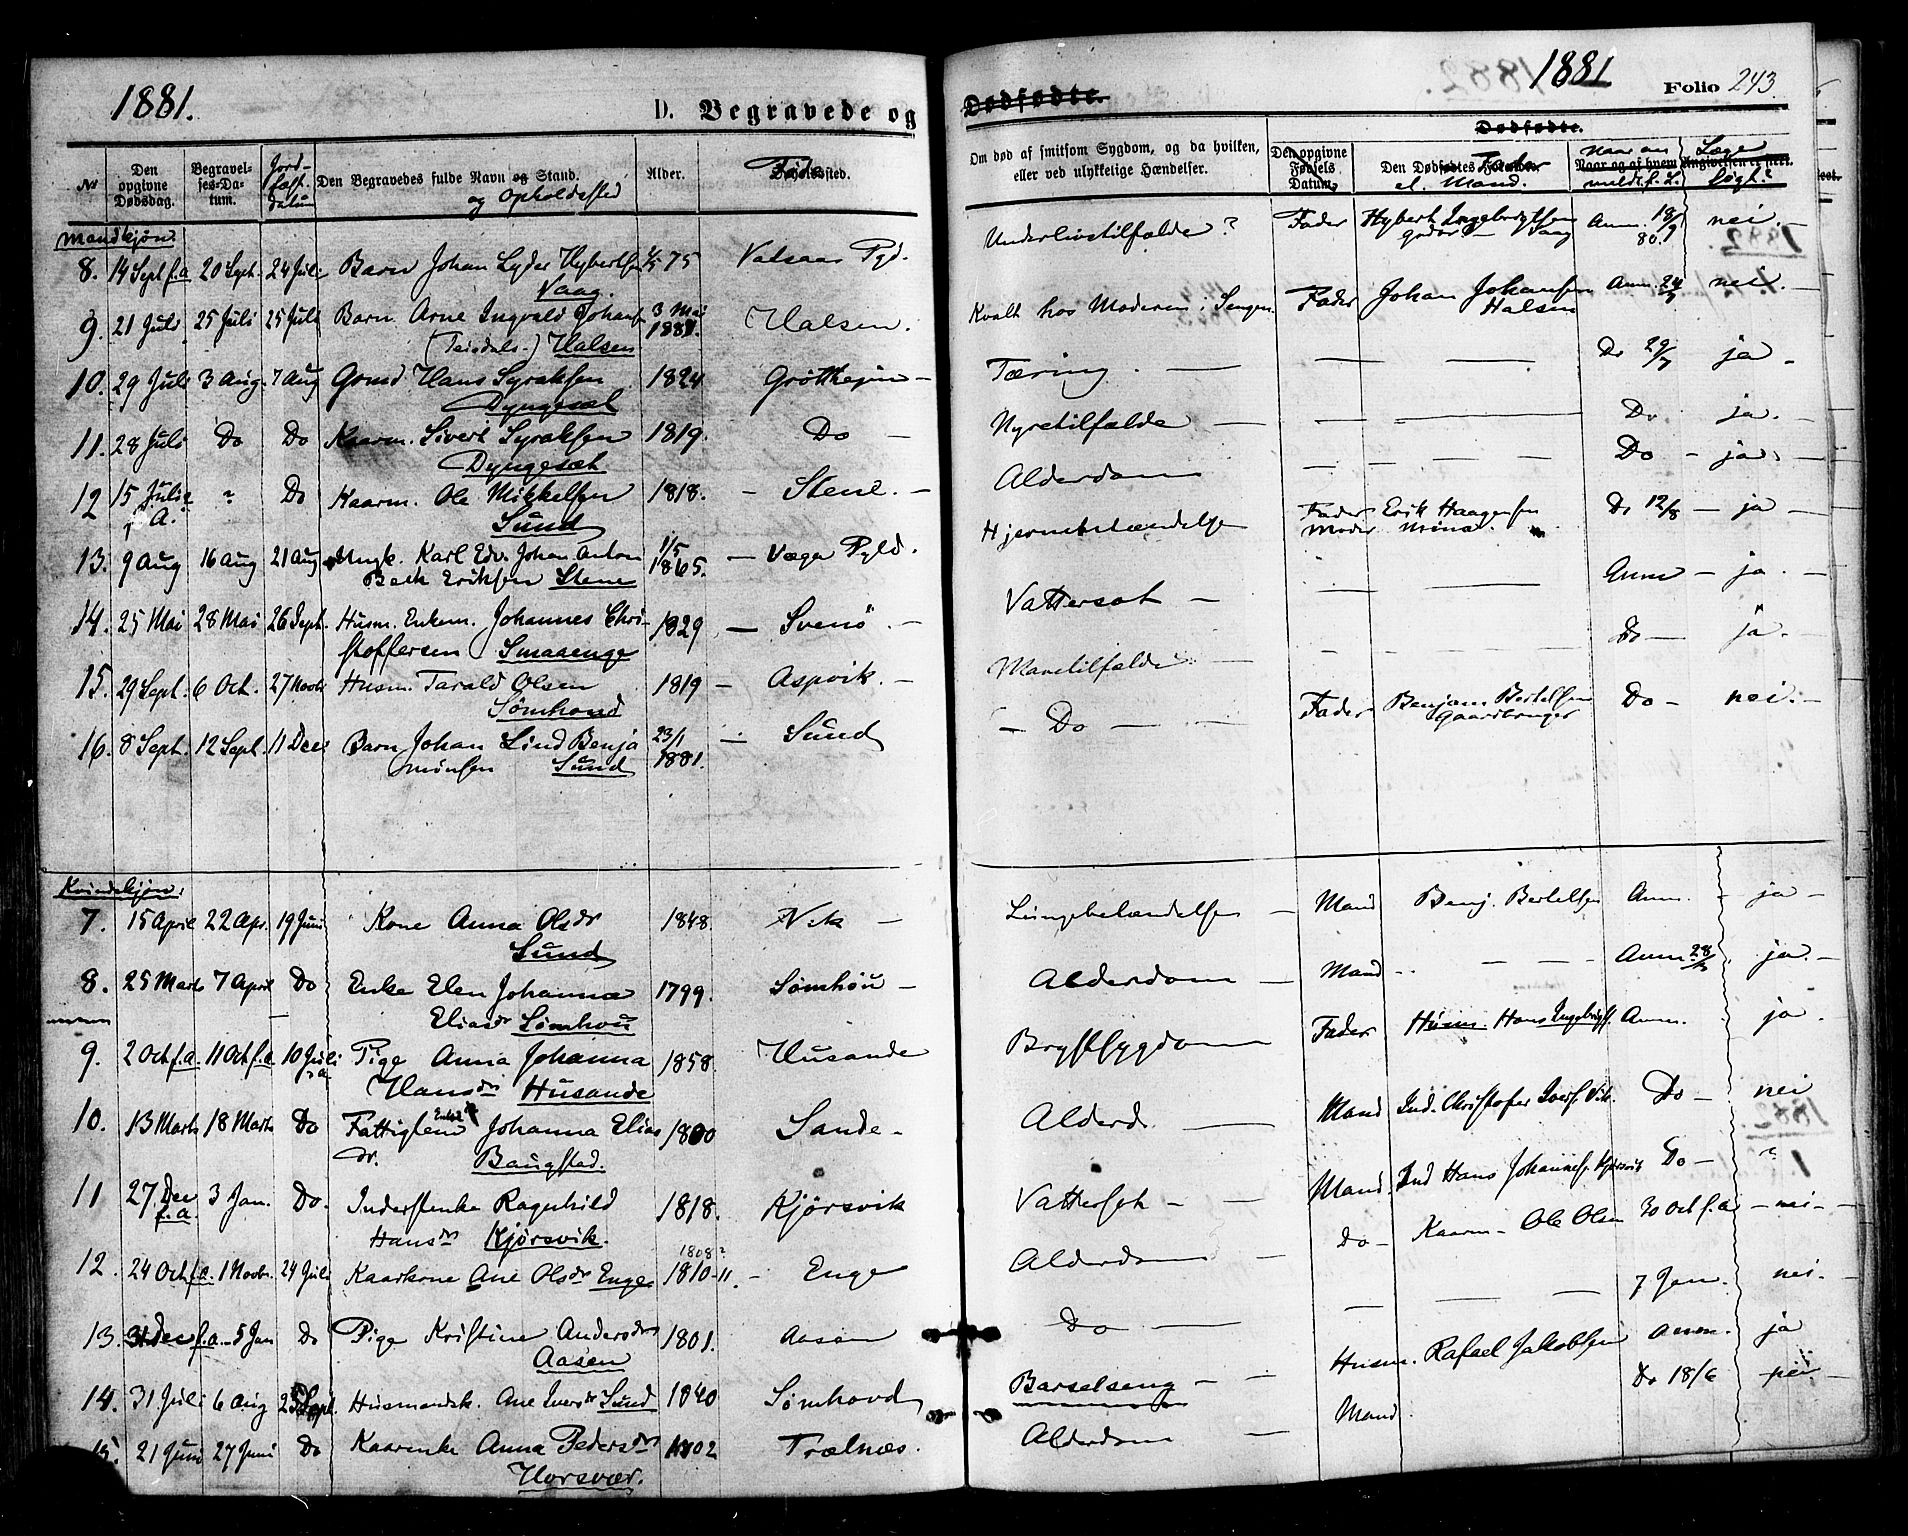 1881.
D. Begravede og
No
Den opgivne Dødsdag.
Begravelses-Datum.
Jordfæst. datum
Den Begravedes fulde Navn og Stand.
og Opholdssted
Alder.
Mandkjøn.
8. 14 Sept f.a 20 Sept. 24 Juli Barn Johan Lyder Hybertsen 75 Vatsaas Pgd.
Vaag.
9. 21 Juli 25 Juli 25 Juli Barn Arne Ingvald Johans 3 Mai 1881. Halsen.
Halsen
10. 29 Juli 3 Aug. 7 Aug Gmd Hans Syraksen 1824 Grøttheim –
Dyngesæt
11. 28 Juli Do Do Kaarm. Sivert Syraksen 1819. Do –
Dyngesæt
12 15 Juli ? " Do Kaarm. Ole Mikkelsen 1818. – Stene. –
A. Sund
13. 9 Aug 16 Aug 21 Aug Ungk. Karl Edv. Johan Anton 1/5 1865. – Vega Pgld.
Beck Eriksen Stene
14. 25 Mai 28 Mai 26 Sept. Husm. Enkem. Johannes Chri- 1829 – Svenö –
stoffersen Smaaenge
15. 29 Sept. 6 Oct. 27 Novbr Husm. Tarald Olsen 1819 – Aspvik. –
Sømhoud
16. 8 Sept. 12 Sept. 11 Dec. Barn Johan Lind Benja 23/1 1881. – Sund
minsen Sund
Kvindekjøn.
7. 15 April 22 Apr. 19 Juni Kone Anna Olsdr 1848. Vik –
Sund
8. 25 Marts 7 April Do Enke Elen Johanna 1799. Sømhou –
Eliasdr Sømhou
9. 2 Oct f.a 11 Oct f.a. 10 Juli Pige Anna Johanna 1858. Husande
Hansdr Husande
10. 13 Marts 18 Marts Do Fattiglem Enke Johanna Elias 1800 Sande –
dr. Baugstad.
11 27 Dec f.a. 3 Jan. Do. Inderstenke Ragnhild 1818. Kjørsvik
Hansdr Kjørsvik.
12. 24 Oct f.a. 1 Novbr. 24 Juli Kaarkone Ane Olsdr Enge 1808? 1810-11. – Enge
13. 31 Dec f.a. 5 Jan Do Pige Kristine Andersdr 1801. Aasen
Aasen
14. 31 Juli 6 Aug 25 Sept. Husmandsk. Ane Iversdr Sund 1840 Sømhovd
15. 21 Juni 27 Juni Do Kaarenke Anna Pedersdr 1802 Trælnæs.
Horsvær.
Dødfødte.
1881
Folio 243.
Om død af smitsom Sygdom, og da hvilken,
eller ved ulykkelige Hændelser.
Den opgivne Fødsels Datum.
Dødfødte.
Den Dødfødtes Forældre
el. Mand.
Naar og af hvem
meldt f. L.
Angivelsen er skeet.
Læge
søgt?
Underlivstilfælde ? Fader Hybert Ingebrigtsen Anm. 18/9 80. nei. –
Kvalt hos Moderen i Sengen Fader Johan Johansen Anm. 24/7 nei
Halsen
Tæring. — — — Do 29/7 ja –
Nyretilfælde — — — Do ja.
Alderdom — — — Do – ja.
Hjernebetændelse Fader Erik Haagensen Do 12/8 – ja –
Moder Mina.
Vattersot – — — Anm – ja. –
Mavetilfælde — — Do – ja. –
– Do – — Fader Benjam Bertelsen Do – nei. –
Gaardbruger
Lungebetændelse – Mand Benj. Bertelsen Anm. – ja –
Alderdom – Mand – – – Anm. 28/ ja. –
Brystsygdom Fader Husm. Hans Ingebrigts. Anm. ja.
Alderd. — Mand Ind. Christofer Ivers. Vik. Do – nei
Vattersot – Mand. Ind Hans Johannes. Kjørsvik Do – ?
Alderdom – Do – Kaarm – Ole Olsen 30 Oct f.a – nei –
Do — — — 7 Jan. nei. –
Barselseng – – Husm. Rafael Jakobsen Anm. ja
Alderdom – Mand. Do 18/6 nei –